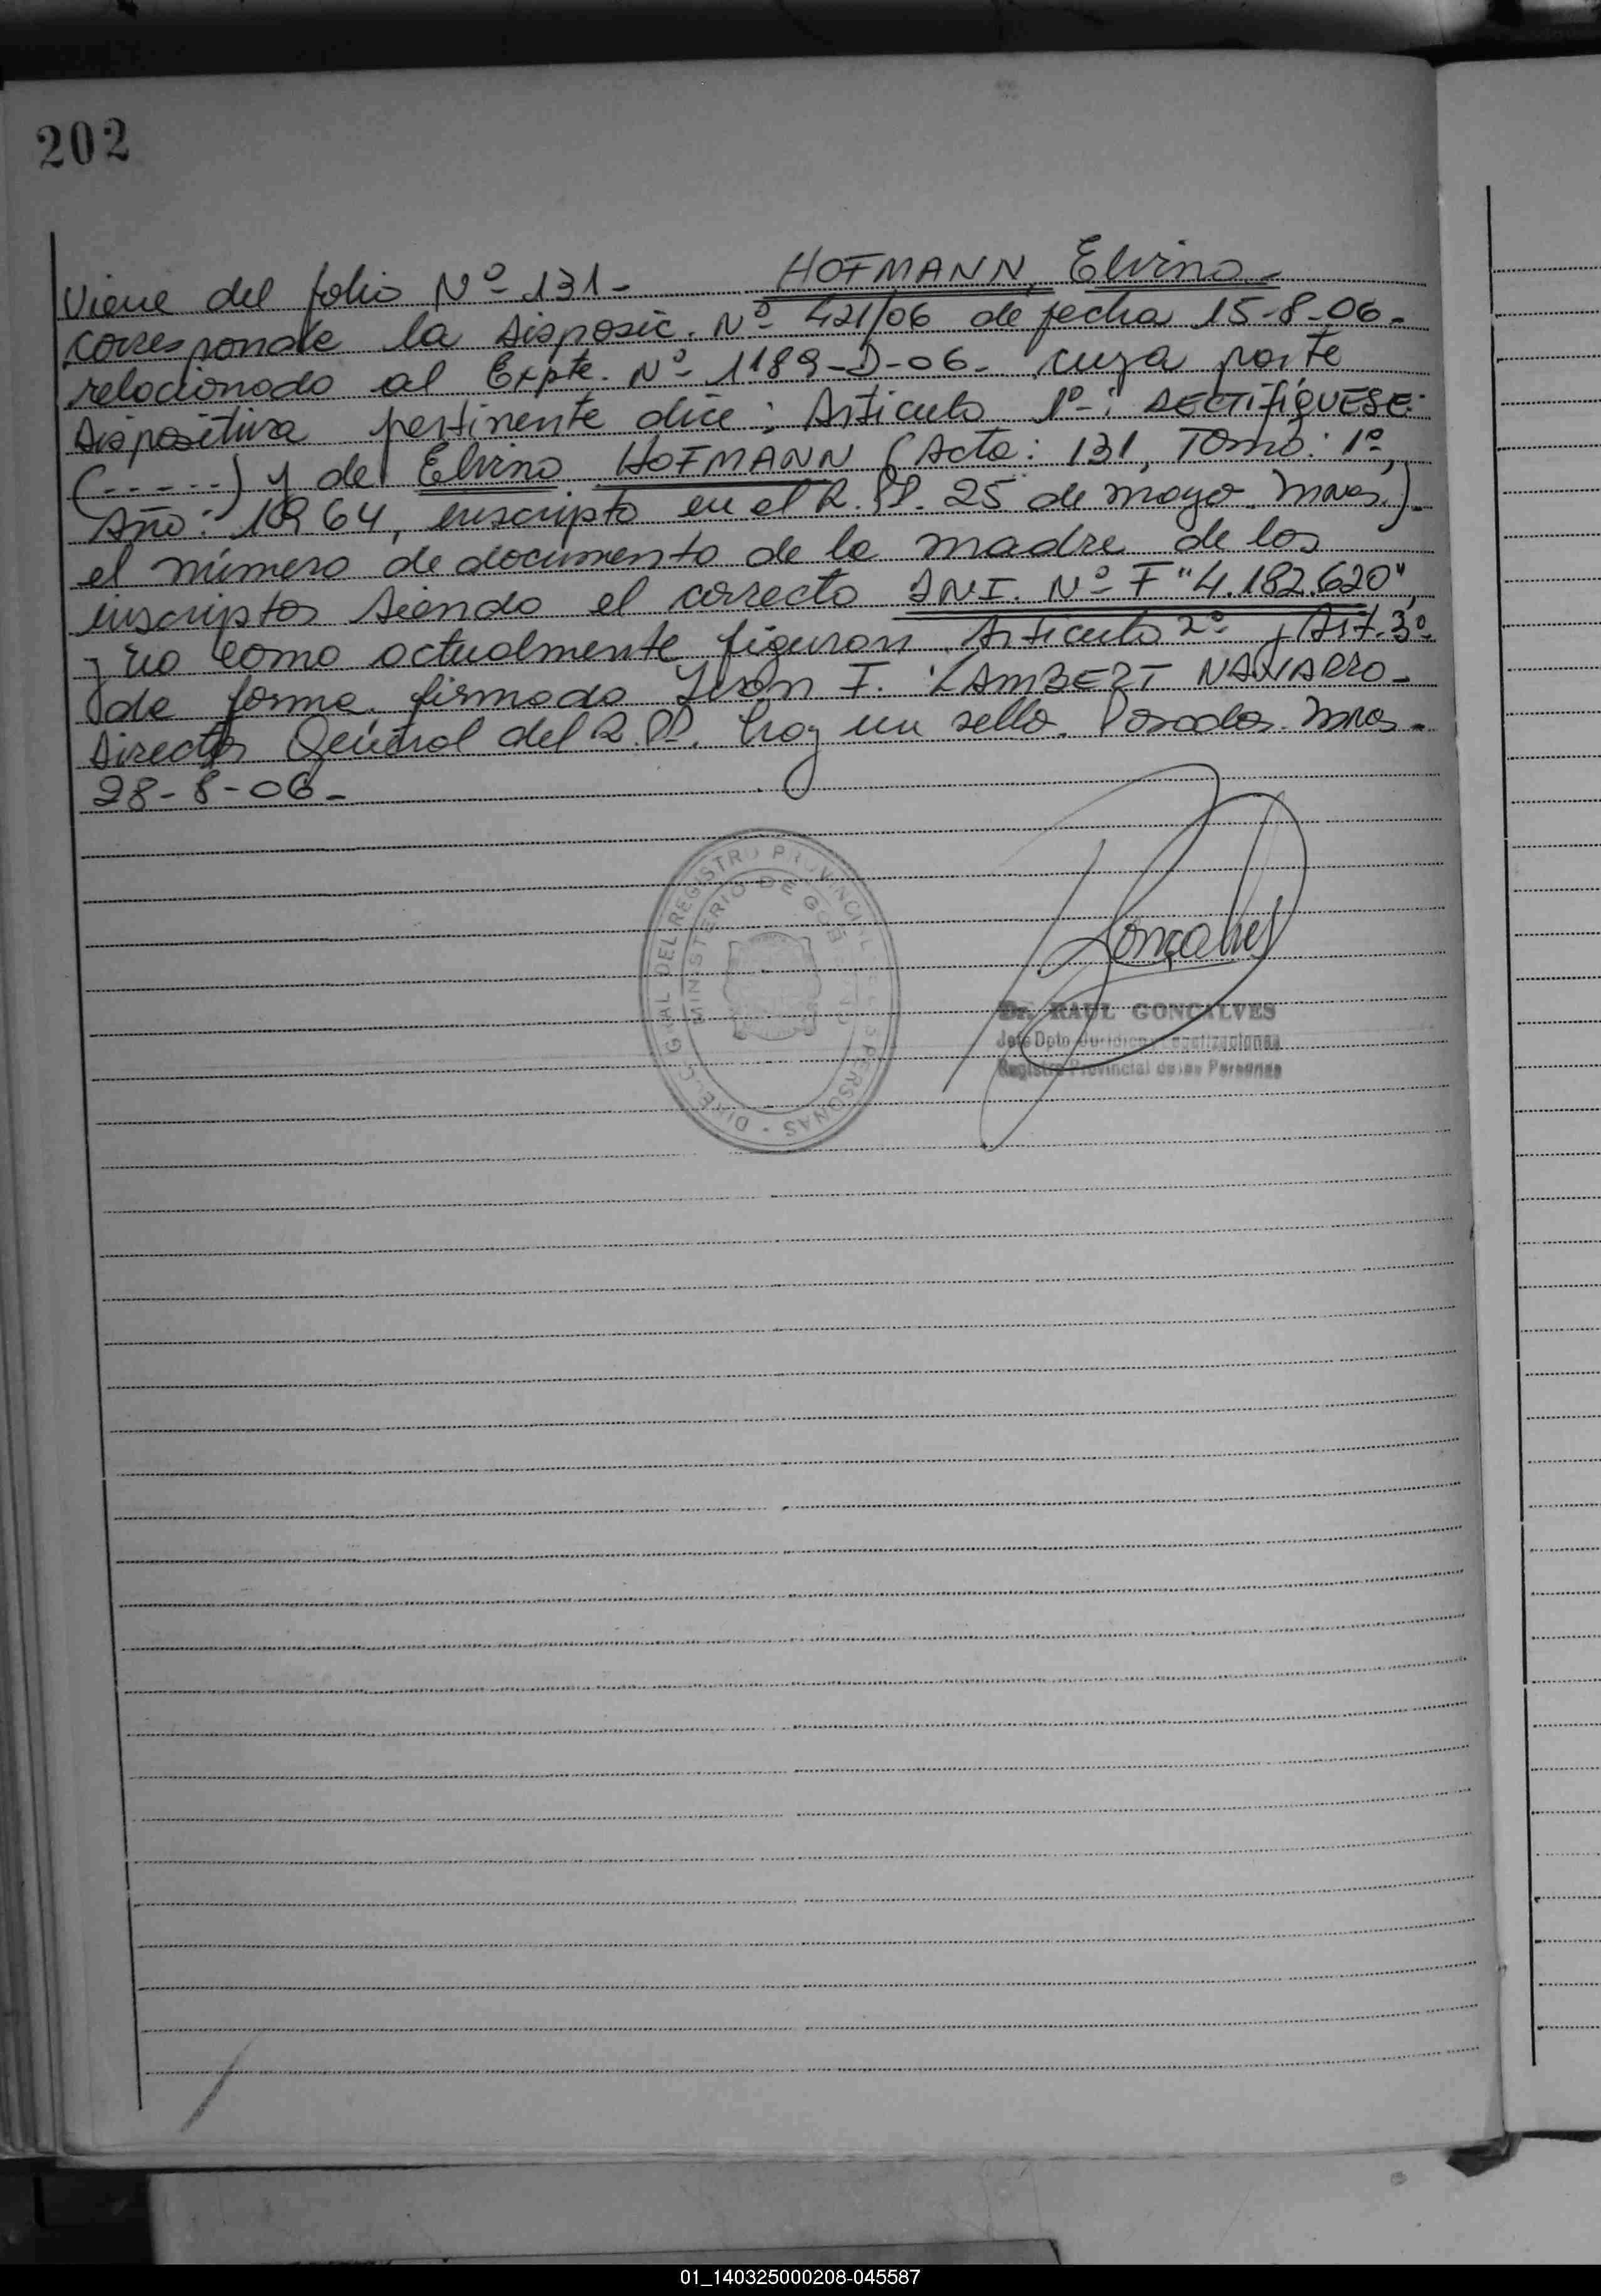 202
Viene del folio Nº 131- HOFMANN, Elvino-
corresponde la Disposic. Nº 421/06 de fecha 15-8-06-
relacionado al Expte. Nº 1189-D-06- cuya parte
Dispositiva pertinente dice: Articulo 1º-: RECTIFÍQUESE:
(------) y de Elvino HOFMANN (Acta: 131, Tomo: 1º,
Año: 1964, inscripto en el R.PP. 25 de mayo. Mnes.)-
el número de documento de la madre de los
inscriptos siendo el correcto DNI. Nº F "4.182.620",
y no como actualmente figuran. Articulo 2º y Art. 3º-
de forma. firmado F. LAMBERT NAVARRO-
Director General del R.PP. hay un sello. Posadas. Mnes-
28-8-06-
DIREC. GRAL DEL REGISTRO PROVINCIAL DE LAS PERSONAS
MINISTERIO DE GOBIERNO
Gonçalves
Dr. RAUL GONCALVES
Jefe Dpto Juridico y Legalizaciones
Registro Provincial de las Personas
01_140325000208-045587